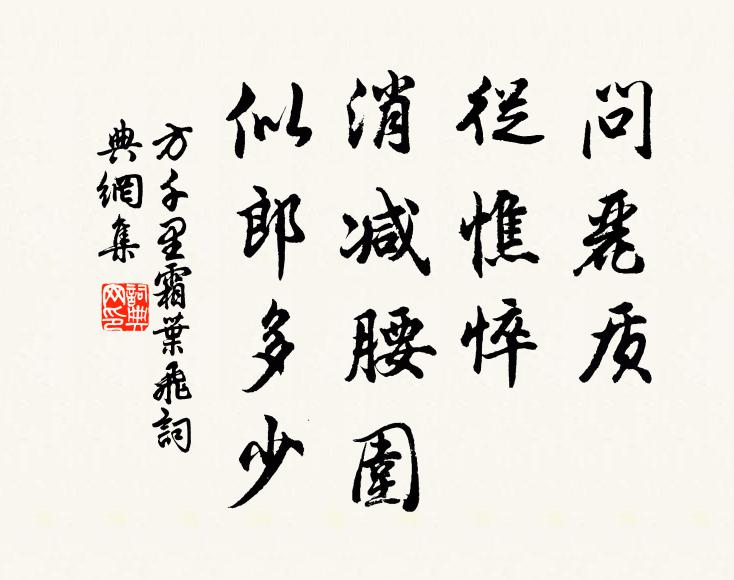 問麗质
從憔悴
消减腰圍
似郎多少
方千里霜葉飛詞
典網集
詞典網印